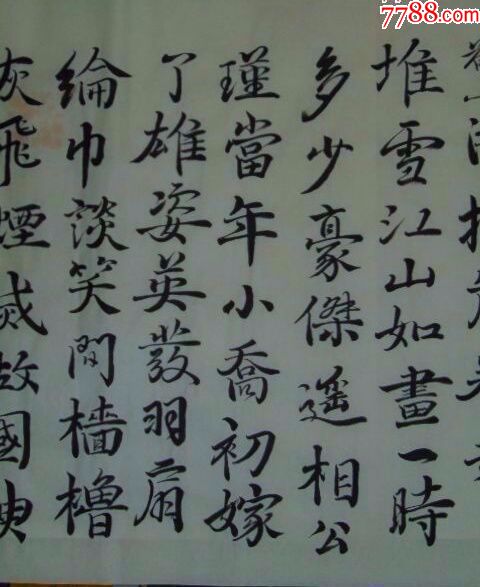 7788.com
堆雪江山如畫一時
多少豪傑遥相公
瑾當年小喬初嫁
了雄姿英發羽扇
綸巾談笑間檣櫓
灰飛煙滅故國